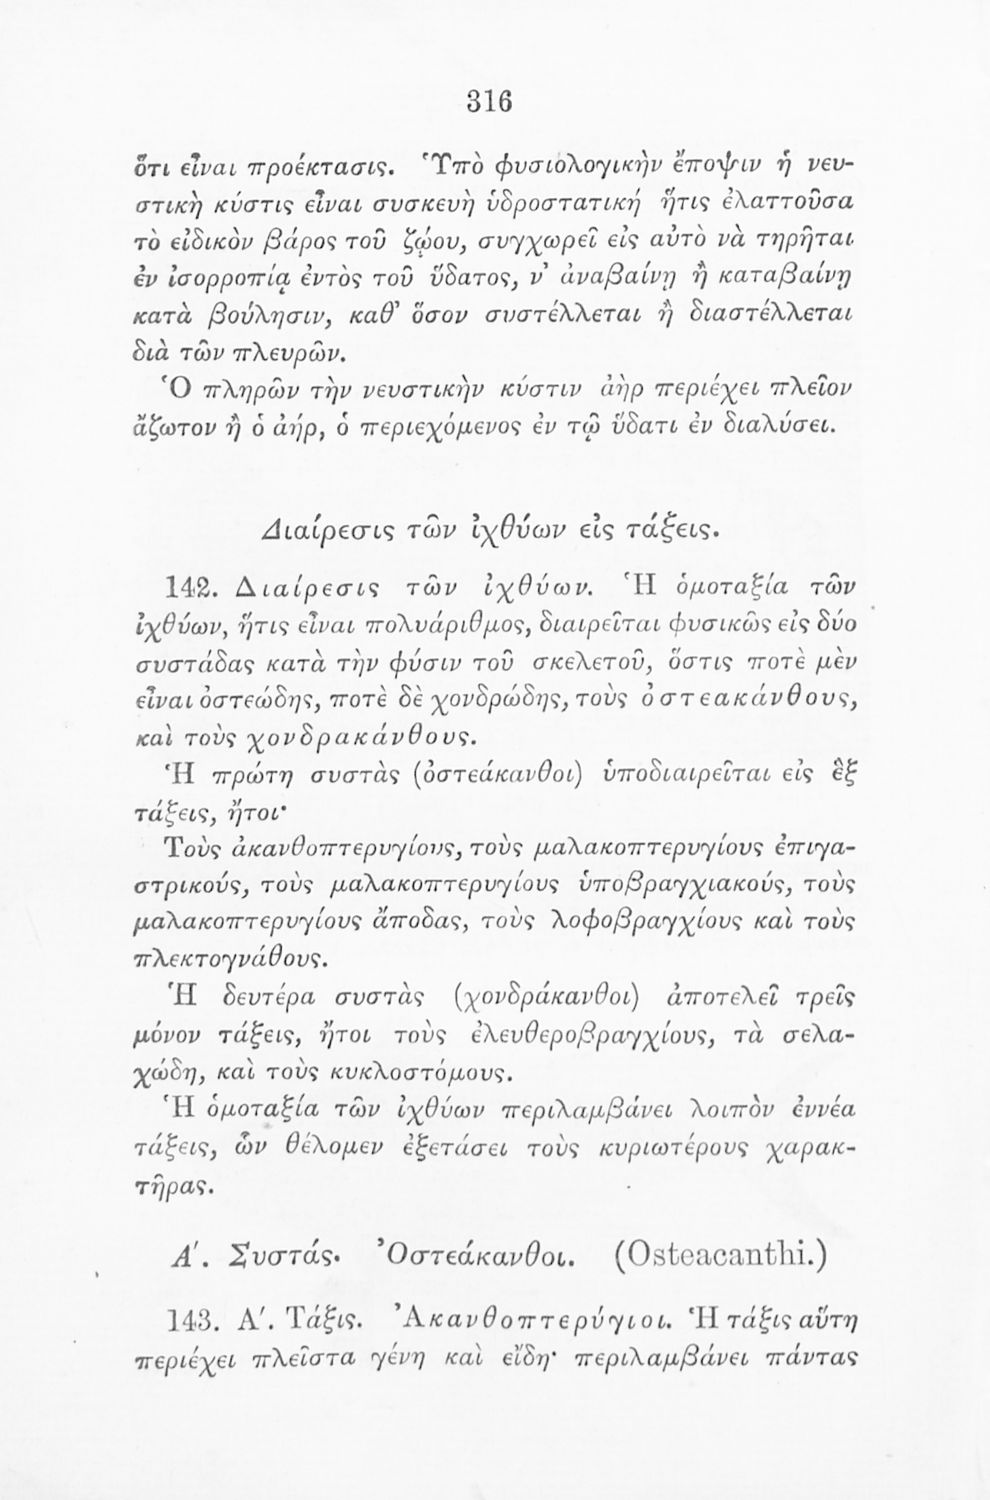 316
ὅτι εἶναι προέκτασις. Ὑπὸ φυσιολογικὴν ἔποψιν ἡ νευ-
στικὴ κύστις εἶναι συσκευὴ ὑδροστατικὴ ἥτις ἐλαττοῦσα
τὸ εἰδικὸν βάρος τοῦ ζῴου, συγχωρεῖ εἰς αὐτὸ νὰ τηρῆται
ἐν ἰσορροπίᾳ ἐντὸς τοῦ ὕδατος, ν’ ἀναβαίνῃ ἢ καταβαίνῃ
κατὰ βούλησιν, καθ’ ὅσον συστέλλεται ἢ διαστέλλεται
διὰ τῶν πλευρῶν.
Ὁ πληρῶν τὴν νευστικὴν κύστιν ἀὴρ περιέχει πλεῖον
ἄζωτον ἢ ὁ ἀήρ, ὁ περιεχόμενος ἐν τῷ ὕδατι ἐν διαλύσει.
Διαίρεσις τῶν ἰχθύων εἰς τάξεις.
142. Διαίρεσις τῶν ἰχθύων. Ἡ ὁμοταξία τῶν
ἰχθύων, ἥτις εἶναι πολυάριθμος, διαιρεῖται φυσικῶς εἰς δύο
συστάδας κατὰ τὴν φύσιν τοῦ σκελετοῦ, ὅστις ποτὲ μὲν
εἶναι ὀστεώδης, ποτὲ δὲ χονδρώδης, τοὺς ὀστεακάνθους,
καὶ τοὺς χονδρακάνθους.
Ἡ πρώτη συστὰς (ὀστεάκανθοι) ὑποδιαιρεῖται εἰς ἓξ
τάξεις, ἤτοι·
Τοὺς ἀκανθοπτερυγίους, τοὺς μαλακοπτερυγίους ἐπιγα-
στρικούς, τοὺς μαλακοπτερυγίους ὑποβραγχιακούς, τοὺς
μαλακοπτερυγίους ἄποδας, τοὺς λοφοβραγχίους καὶ τοὺς
πλεκτογνάθους.
Ἡ δευτέρα συστὰς (χονδράκανθοι) ἀποτελεῖ τρεῖς
μόνον τάξεις, ἤτοι τοὺς ἐλευθεροβραγχίους, τὰ σελα-
χώδη, καὶ τοὺς κυκλοστόμους.
Ἡ ὁμοταξία τῶν ἰχθύων περιλαμβάνει λοιπὸν ἐννέα
τάξεις, ὧν θέλομεν ἐξετάσει τοὺς κυριωτέρους χαρακ-
τῆρας.
Α′. Συστάς. Ὀστεάκανθοι. (Osteacanthi.)
143. Α′. Τάξις. Ἀκανθοπτερύγιοι. Ἡ τάξις αὕτη
περιέχει πλεῖστα γένη καὶ εἴδη· περιλαμβάνει πάντας